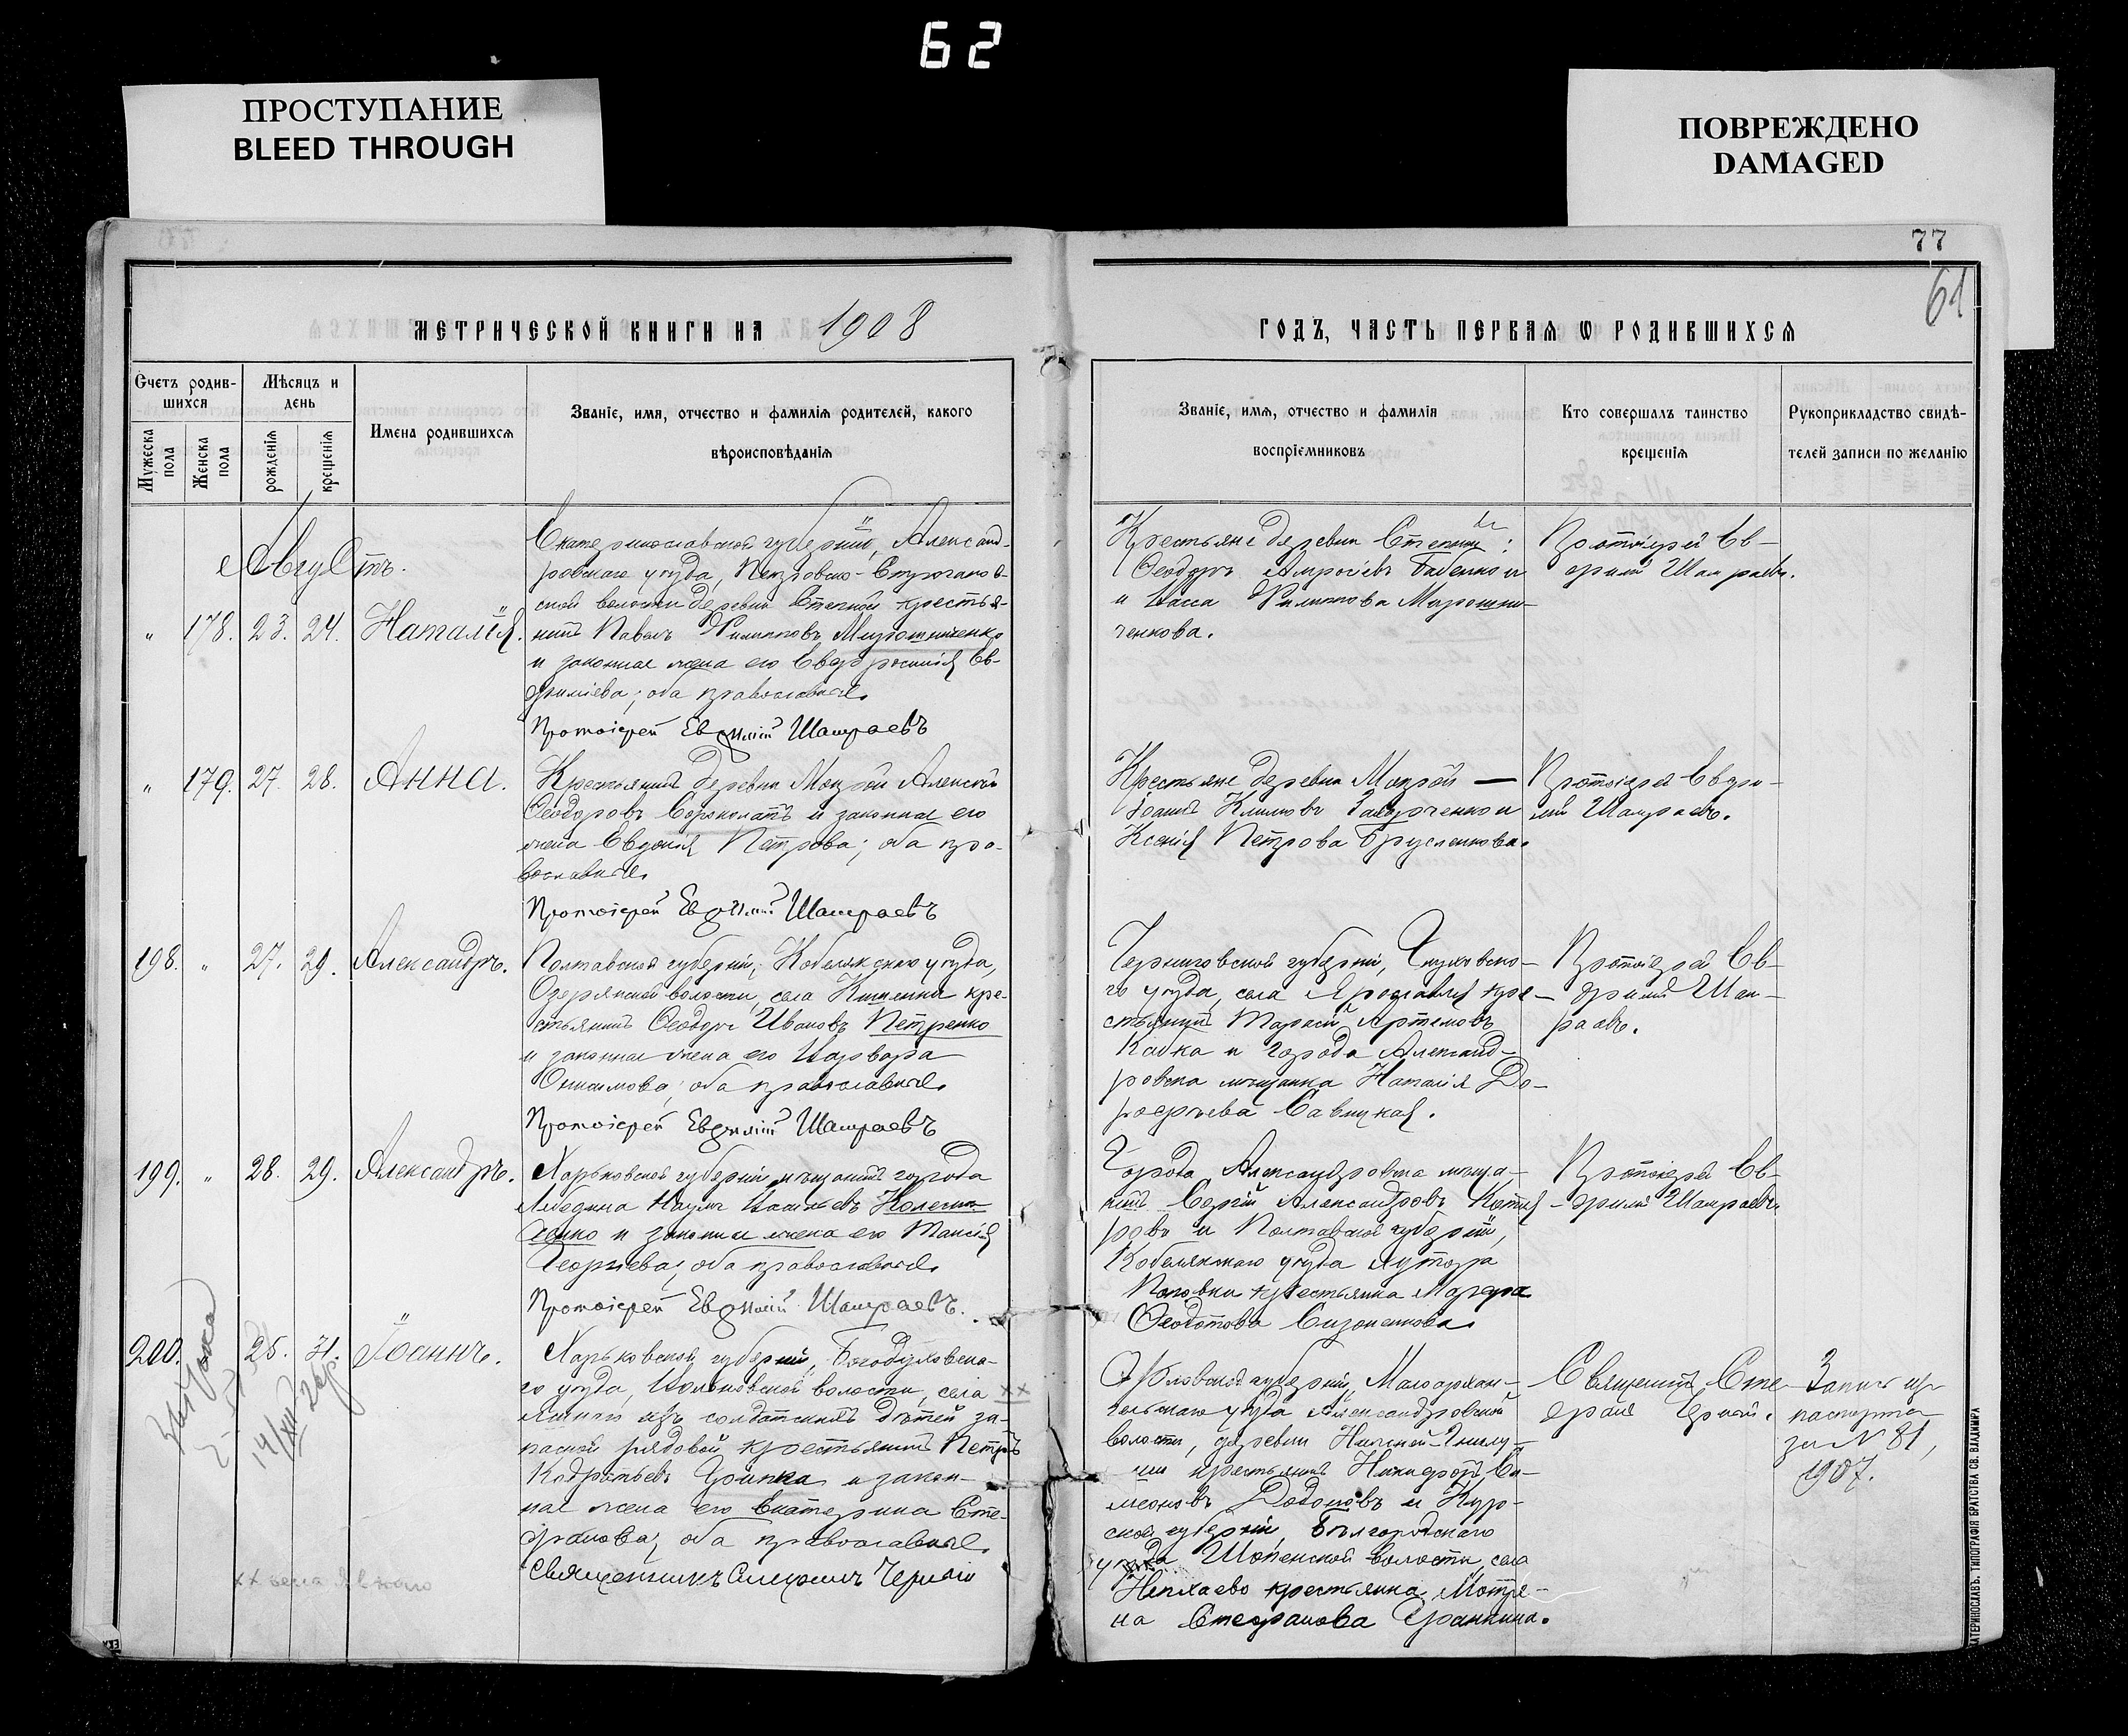 62
ПРОСТУПАНИЕ
BLEED THROUGH
ПОВРЕЖДЕНО
DAMAGED
77
61
МЕТРИЧЕСКОЙ КНИГИ НА 1908
ГОДЪ, ЧАСТЬ ПЕРВАЯ Ѡ РОДИВШИХСЯ
Счетъ родив-
шихся
Мужеска
пола
Женска
пола
Мѣсяцъ и
день
рожденія
крещенія
Имена родившихся
Званіе, имя, отчество и фамилія родителей, какого
вѣроисповѣданія
Званіе, имя, отчество и фамилія
воспріемниковъ
Кто совершалъ таинство
крещенія
Рукоприкладство свидѣ-
телей записи по желанію
Августъ.
„ 178. 23. 24. Наталія.
Екатеринославской губерніи, Александ-
ровскаго уѣзда, Петровско-
ской волости деревни Степной крестья-
нинъ Павелъ Филипповъ Мирошниченко
и законная жена его Евфросинія Ев-
фиміева; оба православные.
Протоіерей Евфимій Шамраевъ
Крестьяне деревни Степной:
Ѳеодоръ Бабенко
и Васса Филиппова Мирошни-
ченкова.
Протоіерей Ев-
фимій Шамраевъ.
„ 179. 27. 28. Анна.
Крестьянинъ деревни Мокрой Алексій
Ѳеодоровъ и законная его
жена Евдокія Петрова; оба пра-
вославные.
Протоіерей Евфимій Шамраевъ
Крестьяне деревни Мокрой —
Іоаннъ Климовъ
Ксенія Петрова
Протоіерей Евфи-
мій Шамраевъ.
198. „ 27. 29. Александръ.
Полтавской губерніи, Кобелякскаго уѣзда,
Озерянской волости, села кре-
стьянинъ Ѳеодоръ Ивановъ Петренко
и законная жена его Варвара
Онисимова; оба православные.
Протоіерей Евфимій Шамраевъ
Черниговской губерніи, Глуховска-
го уѣзда, села Ярославля кре-
стьянинъ Тарасій Артемовъ
и города Александ-
ровска мѣщанка Наталія До-
рофеева Савицкая.
Протоіерей Ев-
фимій Шам-
раевъ.
199. „ 28. 29. Александръ.
Харьковской губерніи, мѣщанинъ города
Лебедина Наумъ Васильевъ
и законная жена его Таисія
Георгіева; оба православные.
Протоіерей Евфимій Шамраевъ.
Города Александровска мѣща-
нинъ Сергій Александровъ
и Полтавской губерніи,
Кобелякскаго уѣзда хутора
Поповки крестьянка Марфа
Ѳеодотова
Протоіерей Ев-
фимій Шамраевъ.
200. 25. 31. Іоаннъ.
Харьковской губерніи, Богодуховска-
го уѣзда, волости, села xx
изъ солдатскихъ дѣтей за-
пасной рядовой крестьянинъ Петръ
и закон-
ная жена его Екатерина Сте-
фанова; оба православные.
Священникъ Стефанъ Черный
Орловской губерніи, Малоархан-
гельскаго уѣзда Александровской
волости, деревни
крестьянинъ Никифоръ Си-
меоновъ Додоновъ и Кур-
ской губерніи Бѣлгородскаго
уѣзда Шопенской волости, села
Непхаево крестьянка Матре-
на Стефанова
Священникъ Сте-
фанъ Черный.
Запись по
паспорта
за № 81,
1907.
ЕКАТЕРИНОСЛАВЪ. ТИПОГРАФІЯ БРАТСТВА СВ. ВЛАДИМІРА